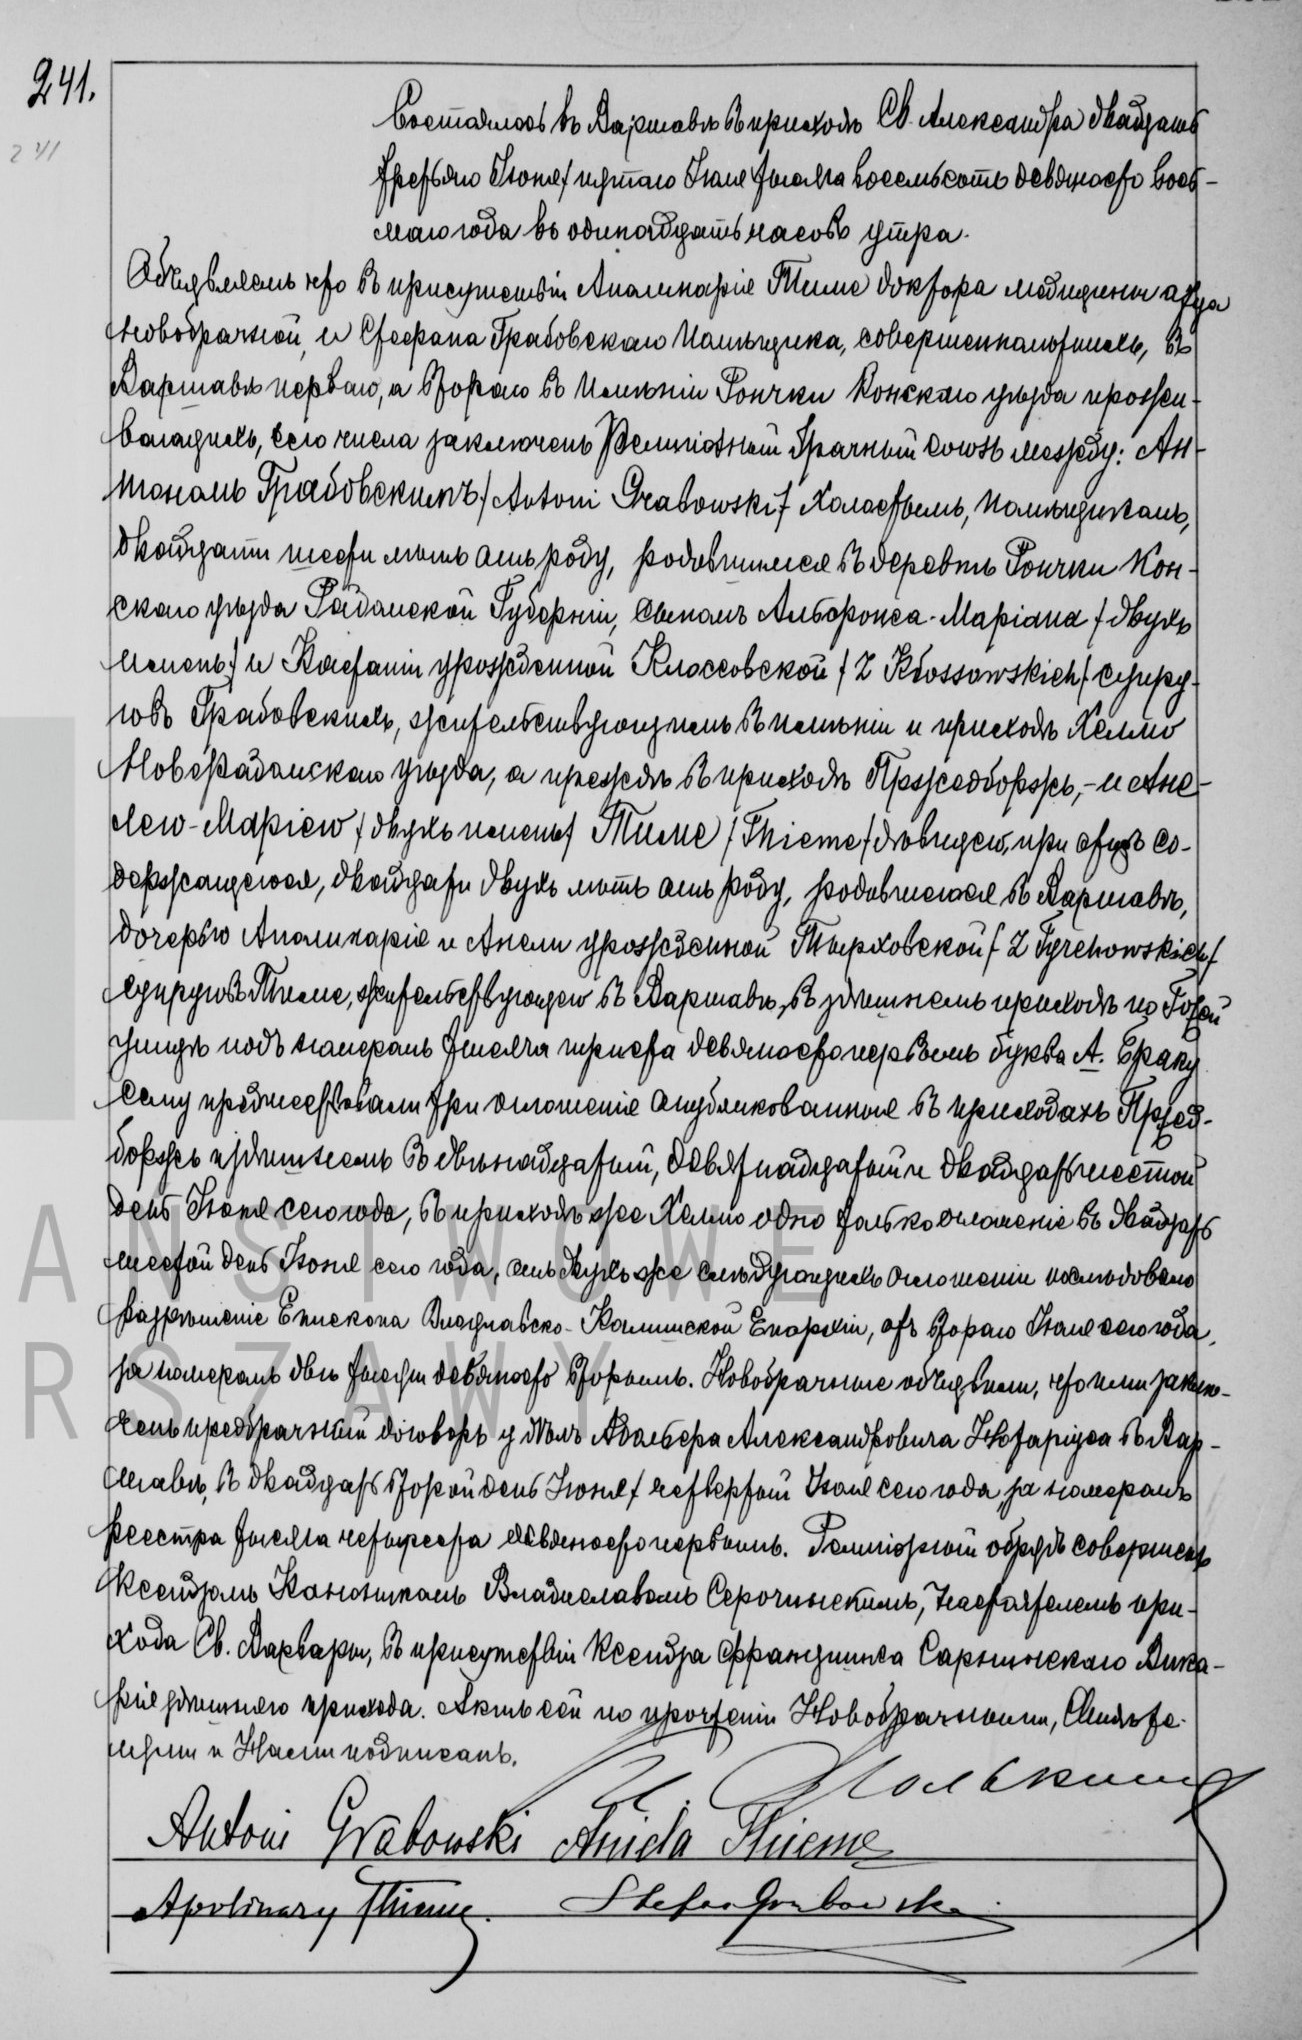 241.
241
Состоялось въ Варшавѣ въ приходѣ Св. Александра двадцать
третьяго Іюня / пятаго Іюля тысяча восемьсотъ девяносто вось-
маго года въ одинадцать часовъ утра.
Объявляемъ что въ присутствіи Аполинарія Тиме доктора медицины отца
новобрачной, и Стефана Грабовскаго Помѣщика, совершеннолѣтнихъ, въ
Варшавѣ перваго, а втораго въ имѣніи Рончки Конскаго уѣзда прожи-
вающихъ, сего числа заключенъ Религіозный брачный союзъ между: Ан-
тономъ Грабовскимъ / Antoni Grabowski / холостымъ, помѣщикомъ,
двадцати шести лѣтъ отъ роду, родившимся въ деревнѣ Рончки Кон-
скаго уѣзда Радомской Губерніи, сыномъ Альфонса-Маріана / двухъ
именъ / и Касфаніи урожденной Клоссовской / z Kłossowskich / супру-
говъ Грабовскихъ, жительствующимъ въ имѣніи и приходѣ Хелмо
Новорадомскаго уѣзда, а прежде въ приходѣ Пржедборжъ, - и Ане-
лею-Маріею / двухъ именъ / Тиме / Thieme / дѣвицею, при отцѣ со-
держащеюся, двадцати двухъ лѣтъ отъ роду, родившеюся въ Варшавѣ,
дочерью Аполинарія и Анели урожденной Тырховской / z Tyrchowskich /
супруговъ Тиме, жительствующею въ Варшавѣ, въ здѣшнемъ приходѣ по Гожей
улицѣ подъ номеромъ тысяча триста девяносто первымъ буква А. Браку
сему предшествовали три оглашенія опубликованныя въ приходахъ Пржед-
боржъ и здѣшнемъ въ двѣнадцатый, девятнадцатый и двадцать шестой
день Іюня сего года, въ приходѣ же Хелмо одно только оглашеніе въ двадцать
шестой день Іюня сего года, отъ двухъ же слѣдующихъ оглашеній послѣдовало
разрѣшеніе Епископа Влоцлавско-Калишской Епархіи, отъ втораго Іюля сего года,
за номеромъ двѣ тысячи девяносто вторымъ. Новобрачные объявили, что ими заклю-
ченъ предбрачный договоръ у дѣлъ Адольфа Александровича Нотаріуса въ Вар-
шавѣ, въ двадцать второй день Іюня / четвертый Іюля сего года, за номеромъ
реестра тысяча четыреста девяносто первымъ. Религіозный обрядъ совершенъ
Ксендзомъ Каноникомъ Владиславомъ Серочинскимъ, Настоятелемъ при-
хода Св. Варвары, въ присутствіи Ксендза Францишка Сарнинскаго Вика-
рія здѣшняго прихода. Актъ сей по прочтеніи Новобрачными, Свидѣте-
лями и Нами подписанъ.
Antoni Grabowski Aniela Thieme
Apolinary Thieme. Stefan Grabowski.
ANSTWOWE
RSZAWY